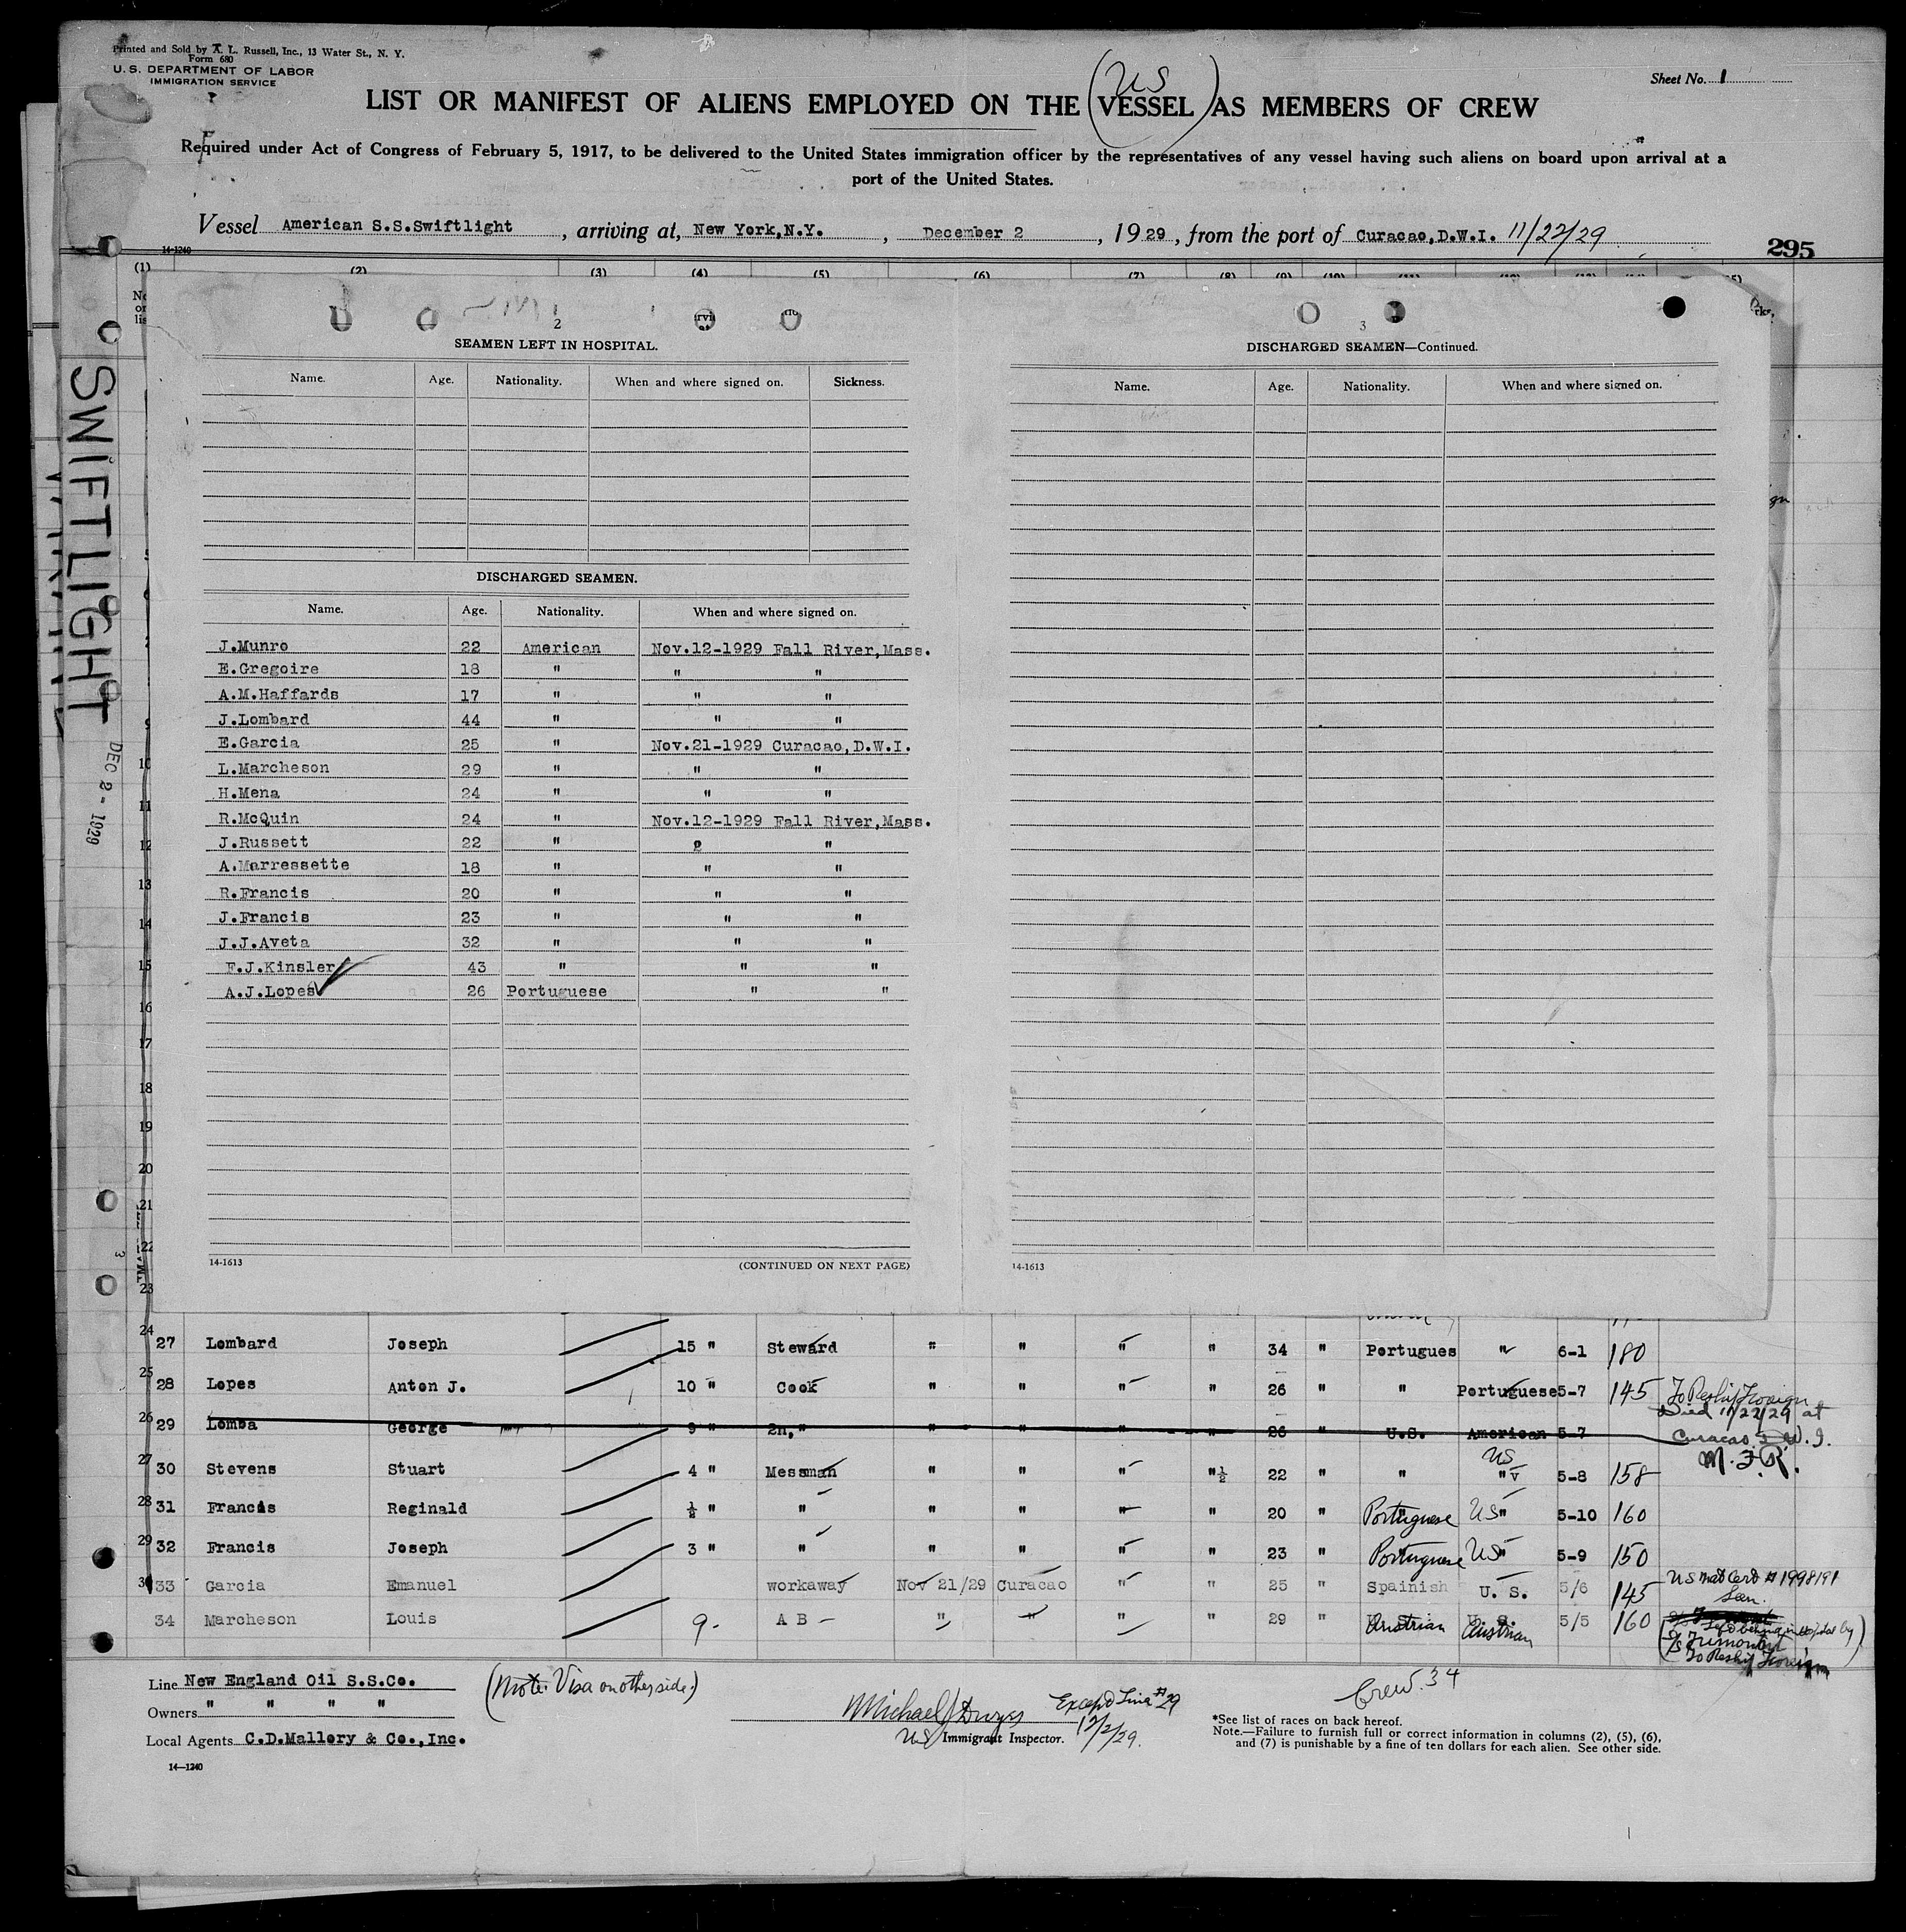 Printed and Sold by A. L. Russell, Inc., 13 Water St., N. Y.
Form 680
U. S. DEPARTMENT OF LABOR
IMMIGRATION SERVICE
Sheet No. 1
US
LIST OR MANIFEST OF ALIENS EMPLOYED ON THE (VESSEL) AS MEMBERS OF CREW
Required under Act of Congress of February 5, 1917, to be delivered to the United States immigration officer by the representatives of any vessel having such aliens on board upon arrival at a
port of the United States.
Vessel American S.S.Swiftlight, arriving at, New York,N.Y., December 2, 1929, from the port of Curacao,D.W.I. 11/22/29
14-1240
295
(1) (2) (3) (4) (5) (6) (7) (8) (9) (10) (11)
SWIFTLIGHT
DEC 2 - 1929
2
SEAMEN LEFT IN HOSPITAL.
Name. Age. Nationality. When and where signed on. Sickness.
DISCHARGED SEAMEN.
Name. Age. Nationality. When and where signed on.
J.Munro 22 American Nov.12-1929 Fall River,Mass.
E.Gregoire 18 " " "
A.M.Haffards 17 " " "
J.Lombard 44 " " "
E.Garcia 25 " Nov.21-1929 Curacao,D.W.I.
L.Marcheson 29 " " "
H.Mena 24 " " "
R.McQuin 24 " Nov.12-1929 Fall River,Mass.
J.Russett 22 " " "
A.Marressette 18 " " "
R.Francis 20 " " "
J.Francis 23 " " "
J.J.Aveta 32 " " "
F.J.Kinsler 43 " " "
A.J.Lopes 26 Portuguese " "
14-1613
(CONTINUED ON NEXT PAGE)
3
DISCHARGED SEAMEN—Continued.
Name. Age. Nationality. When and where signed on.
14-1613
10
11
12
13
14
15
16
17
18
19
20
21
22
23
24 27 Lombard Joseph 15 " Steward " " " " 34 " Portugues " 6-1 180
25 28 Lopes Anton J. 10 " Cook " " " " 26 " " Portuguese 5-7 145 To Reship Foreign
26 29 Lomba George 9 " 2n," " " " " 26 " U.S. American 5-7 Died 11/22/29 at
Curacao D.W.I.
M.F.R.
27 30 Stevens Stuart 4 " Messman " " " "½ 22 " " US " 5-8 158
28 31 Francis Reginald ½ " " " " " " 20 " Portuguese US " 5-10 160
29 32 Francis Joseph 3 " " " " " " 23 " Portuguese US " 5-9 150
30 33 Garcia Emanuel workaway Nov 21/29 Curacao " " 25 " Spainish U. S. 5/6 145 US Nat Cert # 1998191
Seen.
34 Marcheson Louis 9 - A B - " " " " 29 " Austrian U. S. Austrian 5/5 160
To Reship Foreign
Line New England Oil S.S.Co.
Owners " " " "
Local Agents C.D.Mallory & Co.,Inc.
14—1240
(Note Visa on other side.)
Except Line #29
US Immigrant Inspector. 12/2/29.
Crew. 34
*See list of races on back hereof.
Note.—Failure to furnish full or correct information in columns (2), (5), (6),
and (7) is punishable by a fine of ten dollars for each alien. See other side.